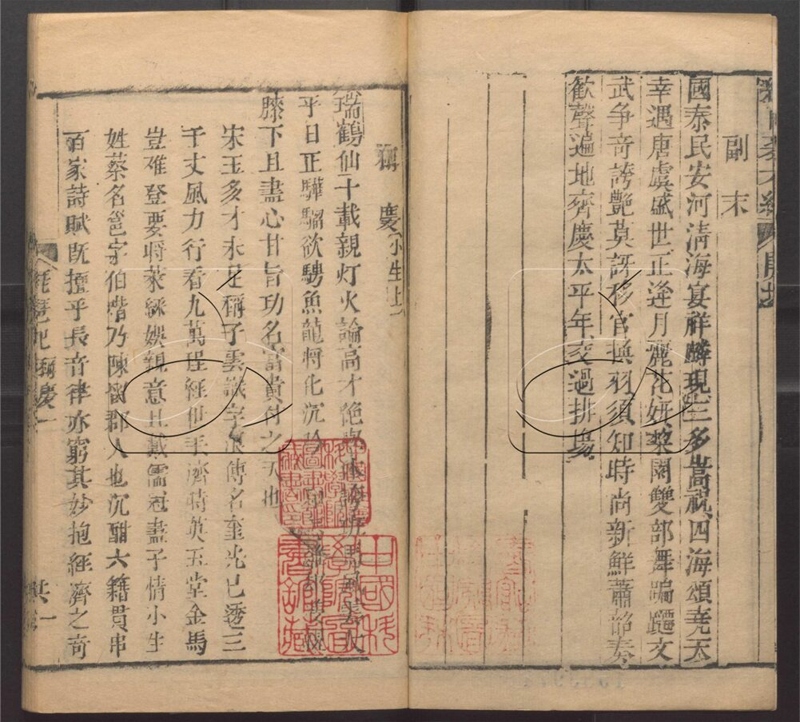 副末
國泰民安河清海宴祥麟現三多嵩祝四海頌堯天
幸遇唐虞盛世正逢月麗花妍梨園雙部舞蹁躚文
武爭奇誇艷莫訝移宮換羽須知時尚新鮮蕭韶奏
歡聲遍地齊慶太平年交過排塲
稱慶 小生上
瑞鶴仙十載親灯火論高才絕學休誇班馬風雲太
平日正驊騮欲騁魚龍將化沉吟一和
膝下且盡心甘旨功名富貴付之天也
宋玉多才未足稱子雲識字浪傳名奎光已透三
千丈風力行看九萬程經世手濟時英玉堂金馬
豈难登要將萊綵娛親意且戴儒冠盡子情小生
姓蔡名邕字伯喈乃陳留郡人也沉酣六籍貫串
百家詩賦既擅乎長音律亦窮其妙抱經濟之奇
琵琶記 稱慶 一
共一
中國科